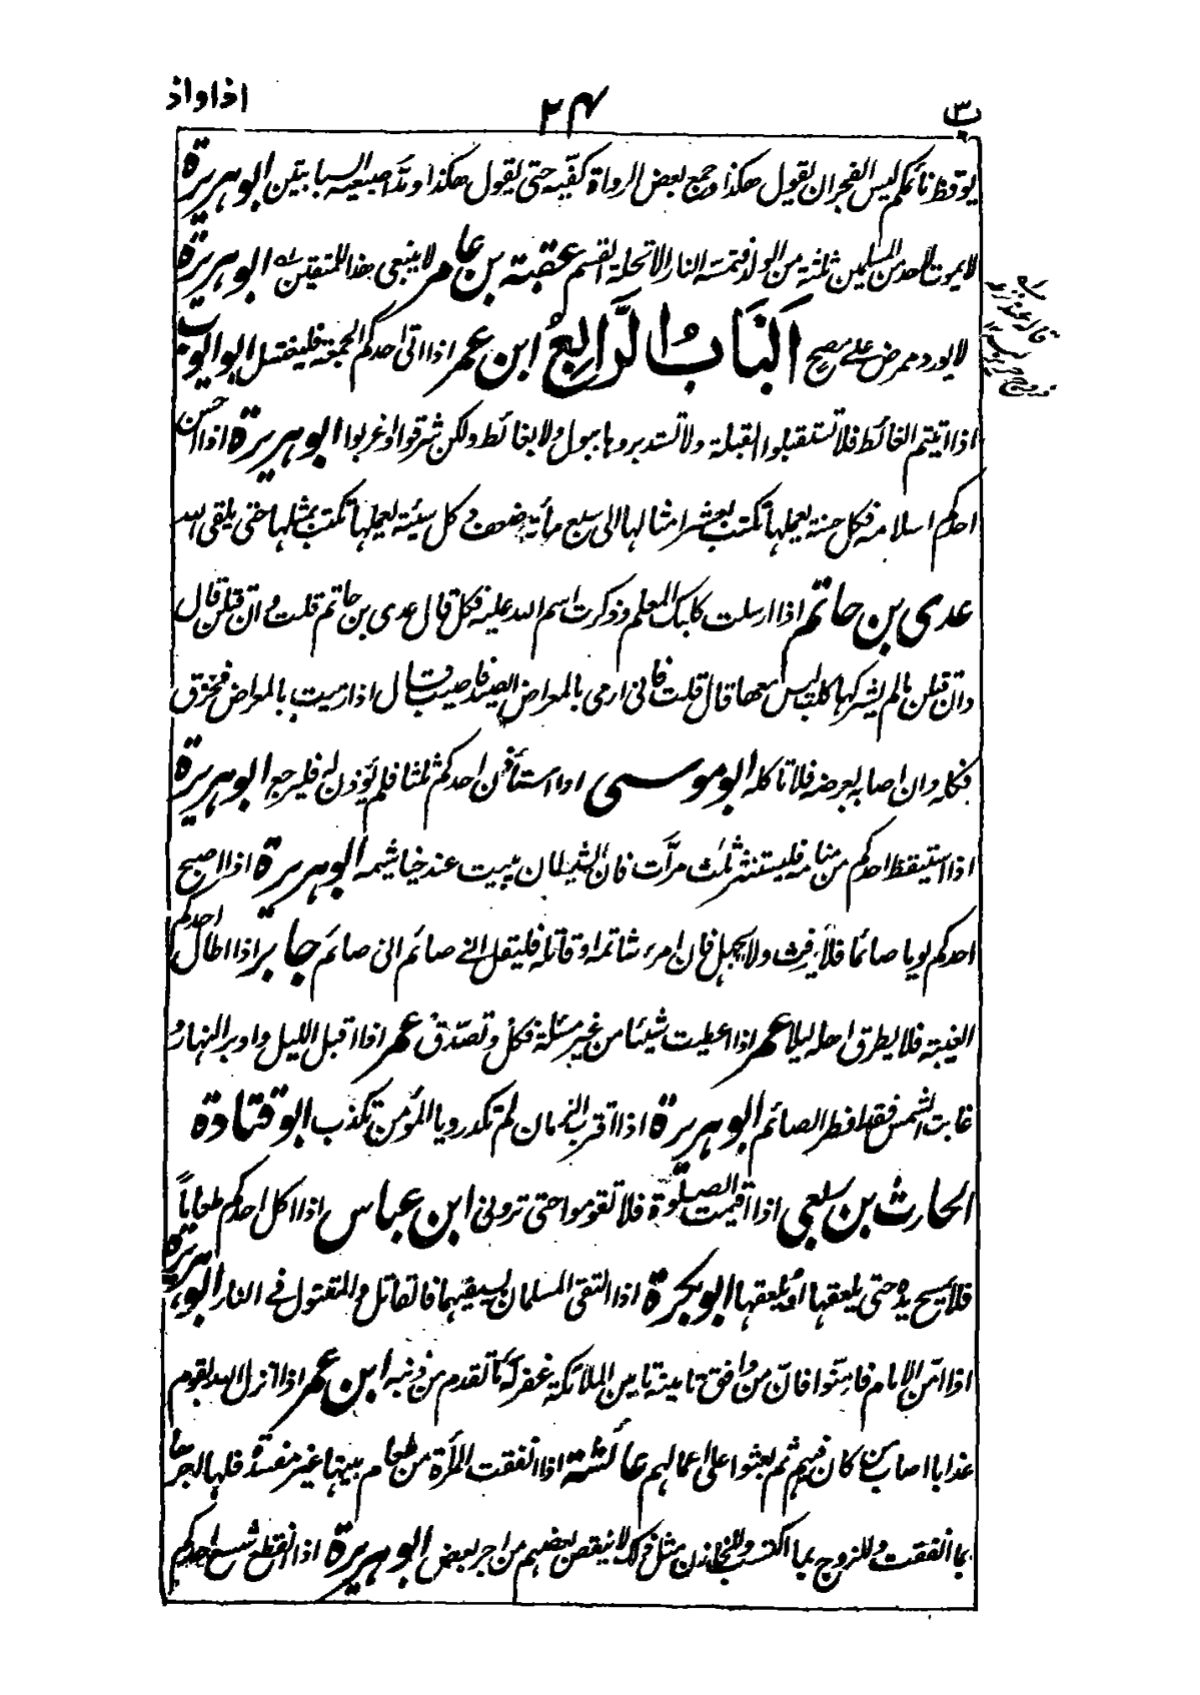 ب ٣
٢٤
اذا واذ
يوقظ نائمكم ليس الفجر ان يقول هكذا وجمع بعض الرواة كفّيه حتى يقول هكذا ومدّ اصبعيه السبابتين ابو هريرة
لا يموت لاحد من المسلمين ثلثة من الولد فتمسه النار الا تحلة القسم عقبة بن عامر لا ينبغى هذا للمتقين ابو هريرة
لا يورد ممرض على مصح اَلبَابُ الرَّابِعُ ابن عمر اذا اتى احدكم الجمعة فليغتسل ابو ايوب
اذا اتيتم الغائط فلا تستقبلوا القبلة ولا تستدبروها ببول ولا بغائط ولكن شرقوا او غربوا ابو هريرة اذا احسن
احدكم اسلامه فكل حسنة يعملها تكتب بعشر امثالها الى سبع مأية ضعف وكل سيئة يعملها تكتب بمثلها حتى يلقى الله
عدى بن حاتم اذا ارسلت كلبك المعلم وذكرت اسم الله عليه فكل قال عدى بن حاتم قلت وان قتلن قال
وان قتلن مالم يشركها كلب ليس معها قال قلت فانى ارمى بالمعراض الصيد فاصيب قال اذا رميت بالمعراض فخزق
فكله وان اصابه بعرضه فلا تاكله ابو موسى اذا استأذن احدكم ثلثا فلم يؤذن له فليرجع ابو هريرة
اذا استيقظ احدكم من منامه فليستنثر ثلث مرّات فان الشيطان يبيت عند خياشيمه ابو هريرة اذا اصبح
احدكم يوما صائما فلا يرفث ولا يجهل فان امرء شاتمه او قاتله فليقل انى صائم انى صائم جابر اذا اطال احدكم
الغيبة فلا يطرق اهله ليلا عمر اذا اعطيت شيئا من غير مسئلة فكل وتصدّق عمر اذا اقبل الليل وادبر النهار و
غابت الشمس فقد افطر الصائم ابو هريرة اذا اقترب الزمان لم تكد رويا المؤمن تكذب ابو قتادة
الحارث بن ربعى اذا اقيمت الصلوة فلا تقوموا حتى ترونى ابن عباس اذا اكل احدكم طعاماً
فلا يمسح يده حتى يلعقها او يُلعقها ابو بكرة اذا التقى المسلمان بسيفيهما فالقاتل والمقتول فى النار ابو هريرة
اذا امّن الامام فامّنوا فانّ من وافق تامينه تامين الملائكة غفر له ما تقدم من ذنبه ابن عمر اذا انزل الله بقوم
عذابا اصاب من كان فيهم ثم بعثوا على اعمالهم عائشة اذا انفقت المرأة من طعام بيتها غير مفسدة فلها اجرها
بما انفقت وللزوج بما اكتسب وللخازن مثل ذلك لا ينقص بعضهم من اجر بعض ابو هريرة اذا انقطع شسع احدكم